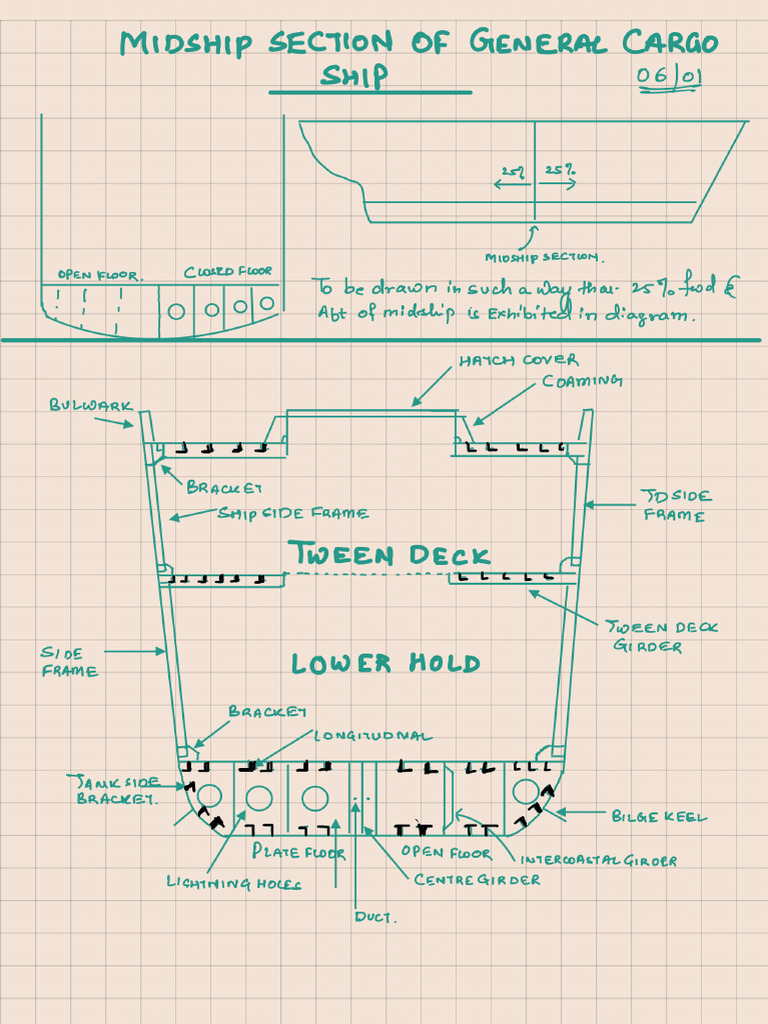 MIDSHIP SECTION OF GENERAL CARGO
SHIP
06/01
25% 25%
MIDSHIP SECTION.
OPEN FLOOR. CLOSED FLOOR
To be drawn in such a way that 25% fwd &
Aft of midship is Exhibited in diagram.
HATCH COVER
COAMING
BULWARK
BRACKET
SHIP SIDE FRAME
TD SIDE
FRAME
TWEEN DECK
TWEEN DECK
GIRDER
SIDE
FRAME
LOWER HOLD
BRACKET
LONGITUDNAL
TANK SIDE
BRACKET.
BILGE KEEL
PLATE FLOOR
OPEN FLOOR
INTERCOASTAL GIRDER
LIGHTNING HOLES
CENTRE GIRDER
DUCT.